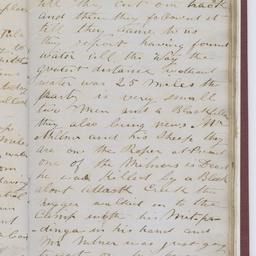 till they cut our track
and then they followed it
till they came to us
they report having found
water all the way the
greatest distance without
water was 25 miles the
party is very small
two Men and a Blackfellow
they also bring news. Mr
Milner and his Sheep they
are on the Roper
one of the Milners is Dead
he was killed by a Black
about Attack Creek the
nigger walked in to the
Camp with his
in his hand and
Mr Milner was just going